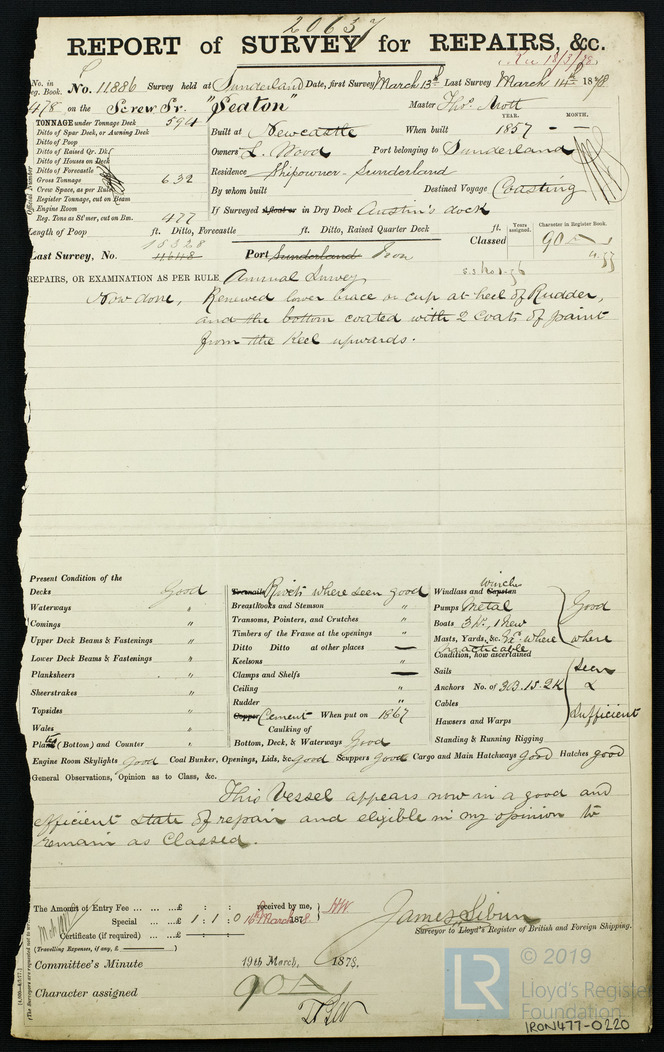 20637
REPORT of SURVEY for REPAIRS, &c.
Rec 18/3/78
No. in Reg. Book. No. 11886 Survey held at Sunderland Date, first Survey March 13th Last Survey March 14th 1878
478 on the Screw Sr. "Seaton" Master Thos. Mott
TONNAGE under Tonnage Deck 594
Ditto of Spar Deck, or Awning Deck
Ditto of Poop
Ditto of Raised Qr. Dk
Ditto of Houses on Deck
Ditto of Forecastle
Gross Tonnage 632
Crew Space, as per Rule
Register Tonnage, cut on Beam
Engine Room
Reg. Tons as St'mer, cut on Bm. 477
YEAR. MONTH.
Built at Newcastle When built 1857 — —
Owners L. Wood Port belonging to Sunderland
Residence Shipowner - Sunderland
By whom built Destined Voyage Coasting
If Surveyed Afloat or in Dry Dock Austin's dock
Length of Poop ft. Ditto, Forecastle ft. Ditto, Raised Quarter Deck ft.
Years assigned. Character in Register Book.
Classed 90 A 1
4.77
15328
Last Survey, No. 11648 Port Sunderland Iron
s.s. No. 1-76
REPAIRS, OR EXAMINATION AS PER RULE, Annual Survey
Now done, Renewed lower brace or cup at heel of Rudder,
and the bottom coated with 2 coats of paint
from the Keel upwards.
Present Condition of the
Decks Good
Waterways "
Comings "
Upper Deck Beams & Fastenings "
Lower Deck Beams & Fastenings "
Planksheers "
Sheerstrakes "
Topsides "
Wales "
Plates (Bottom) and Counter "
Treenails Rivets where seen good
Breasthooks and Stemson "
Transoms, Pointers, and Crutches "
Timbers of the Frame at the openings "
Ditto Ditto at other places —
Keelsons "
Clamps and Shelfs —
Ceiling "
Rudder "
Copper Cement When put on 1867
Caulking of
Bottom, Deck, & Waterways Good
winches
Windlass and Capstan
Pumps Metal
Boats 3 W., 1 New
Masts, Yards, &c. Gd. where
practicable
Condition, how ascertained
Good
where
Sails
Anchors No. of 3B. 1S. 2K
Cables
Hawsers and Warps
Standing & Running Rigging
seen
&
Sufficient
Engine Room Skylights Good Coal Bunker, Openings, Lids, &c. Good Scuppers Good Cargo and Main Hatchways Good Hatches good
General Observations, Opinion as to Class, &c.
This Vessel appears now in a good and
efficient state of repair and eligible in my opinion to
remain as Classed.
The Amount of Entry Fee ... ... ...£ : : received by me,
Special ... ...£ 1 : 1 : 0 16th March 1878. HW
Certificate (if required) ...£ : :
(Travelling Expenses, if any, £ )
James Sibun
Surveyor to Lloyd's Register of British and Foreign Shipping.
Committee's Minute 19th March, 1878.
Character assigned 90 A 1
© 2019
LR
Lloyd's Register
Foundation
IRON477-0220